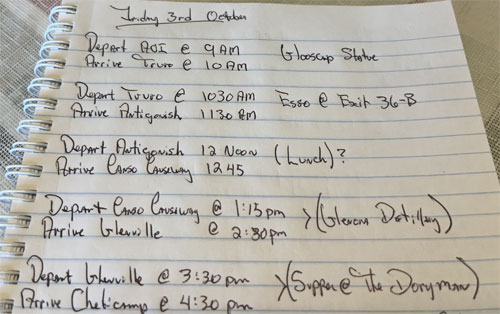 Friday 3rd October
Depart AOI @ 9AM Glooscap Statue
Arrive Truro @ 10AM
Depart Truro @ 1030AM Esso @ Exit 36-B
Arrive Antigonish 1130AM
Depart Antigonish 12 Noon (Lunch)?
Arrive Canso Causeway 1245
Depart Canso Causeway @ 1:15pm >(Glenora Distillery)
Arrive Glenville @ 2:30pm
Depart Glenville @ 3:30pm >(Supper @ The Doryman)
Arrive Cheticamp @ 4:30pm